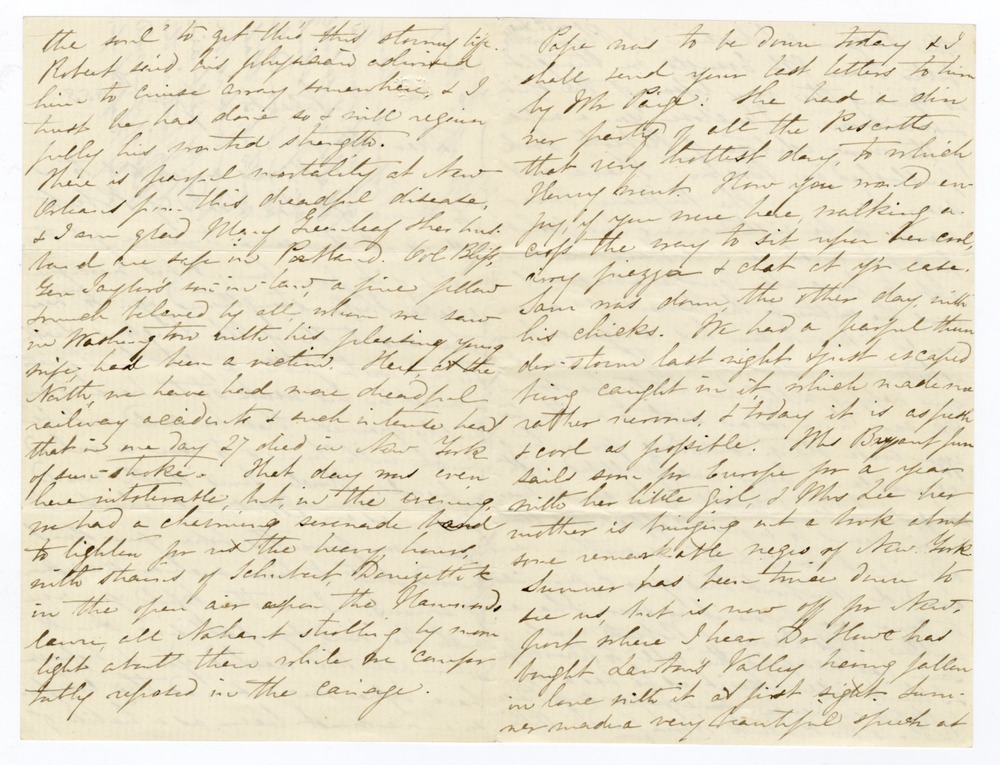 the soul" to get thro' this stormy life.
Robert said his physician advised
him to cruise away somewhere, & I
trust he has done so & will regain
fully his wonted strength.
There is fearful mortality at New
Orleans from this dreadful disease,
& I am glad Mary Greenleaf & her hus-
band are safe in Portland. Col Bliss,
Gen Taylor's son-in-law, a fine fellow
& much beloved by all, whom we saw
in Washington with his pleasing young
wife, has been a victim. Here, at the
North, we have had more dreadful
railway accidents & such intense heat
that in one day 27 died in New York
of sun-stroke. That day was even
here intolerable, but, in the evening,
we had a charming serenade band
to lighten for us the heavy hours,
with strains of Schubert Donizetti &c
in the open air upon the Hammonds
lawn, all Nahant strolling by moon
light about them while we comfor
tably reposed in the carriage.
Pape was to be down today & I
shall send your last letters to him
by Mr Paige. She had a din
ner party of all the Prescotts
that very hottest day, to which
Henry went. How you would en-
joy, if you were here, walking a-
cross the way to sit upon her cool,
airy piazza & chat at yr ease.
Sam was down, the other day, with
his chicks. We had a fearful thun
der-storm last night & just escaped
being caught in it, which made me
rather nervous, & today it is as fresh
& cool as possible. Mrs Bryant
sails soon for Europe for a year
with her little girl, & Mrs Lee her
mother is bringing out a book about
some remarkable negro of New York
Sumner has been twice down to
see us, but is now off for New-
port where I hear Dr Howe has
bought Lawton's Valley having fallen
in love with it at first sight. Sum-
ner made a very beautiful speech at